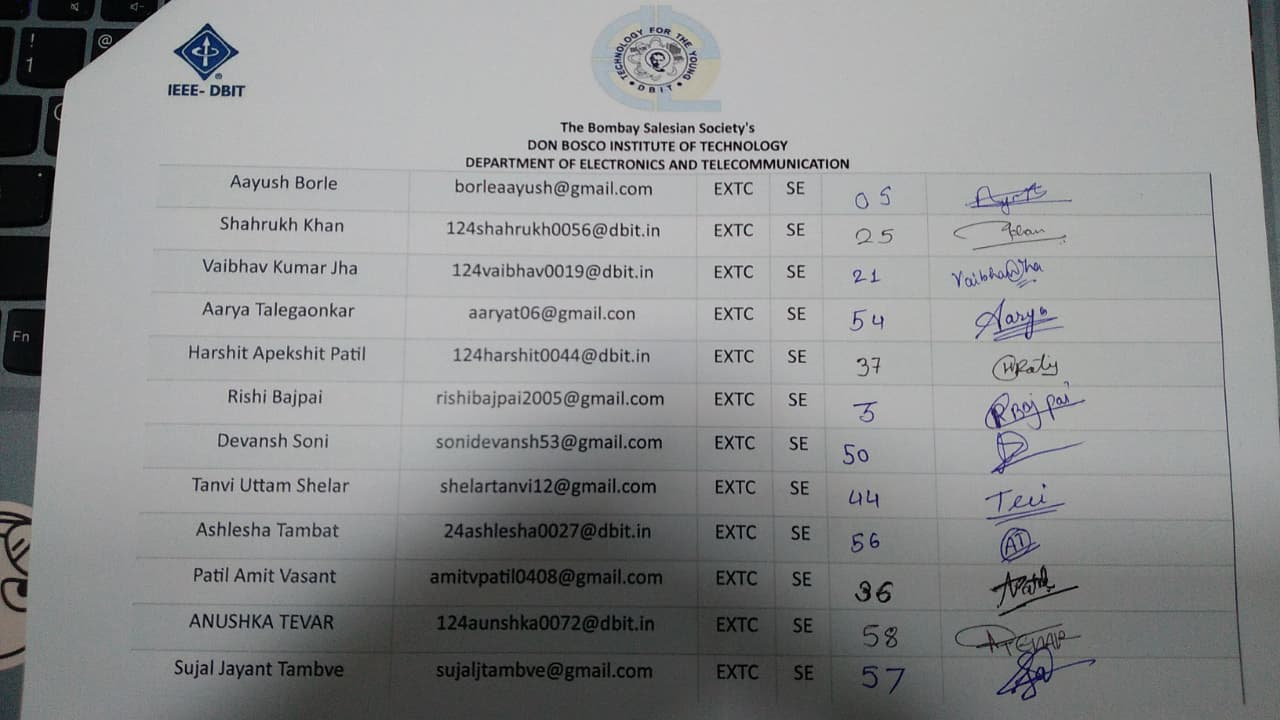 ! @
1
Fn
IEEE- DBIT
TECHNOLOGY FOR THE YOUNG
DBIT
The Bombay Salesian Society's
DON BOSCO INSTITUTE OF TECHNOLOGY
DEPARTMENT OF ELECTRONICS AND TELECOMMUNICATION
Aayush Borle borleaayush@gmail.com EXTC SE 05
Shahrukh Khan 124shahrukh0056@dbit.in EXTC SE 25
Vaibhav Kumar Jha 124vaibhav0019@dbit.in EXTC SE 21
Aarya Talegaonkar aaryat06@gmail.con EXTC SE 54 Aarya
Harshit Apekshit Patil 124harshit0044@dbit.in EXTC SE 37
Rishi Bajpai rishibajpai2005@gmail.com EXTC SE RBajpai
Devansh Soni sonidevansh53@gmail.com EXTC SE 50
Tanvi Uttam Shelar shelartanvi12@gmail.com EXTC SE 44
Ashlesha Tambat 24ashlesha0027@dbit.in EXTC SE 56 AT
Patil Amit Vasant amitvpatil0408@gmail.com EXTC SE 36
ANUSHKA TEVAR 124aunshka0072@dbit.in EXTC SE 58
Sujal Jayant Tambve sujaljtambve@gmail.com EXTC SE 57